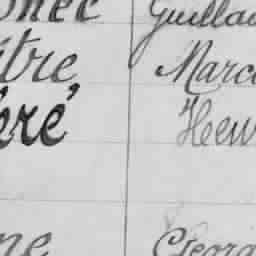 onet Guillau
ître Marc
bré Henr
ne Georg